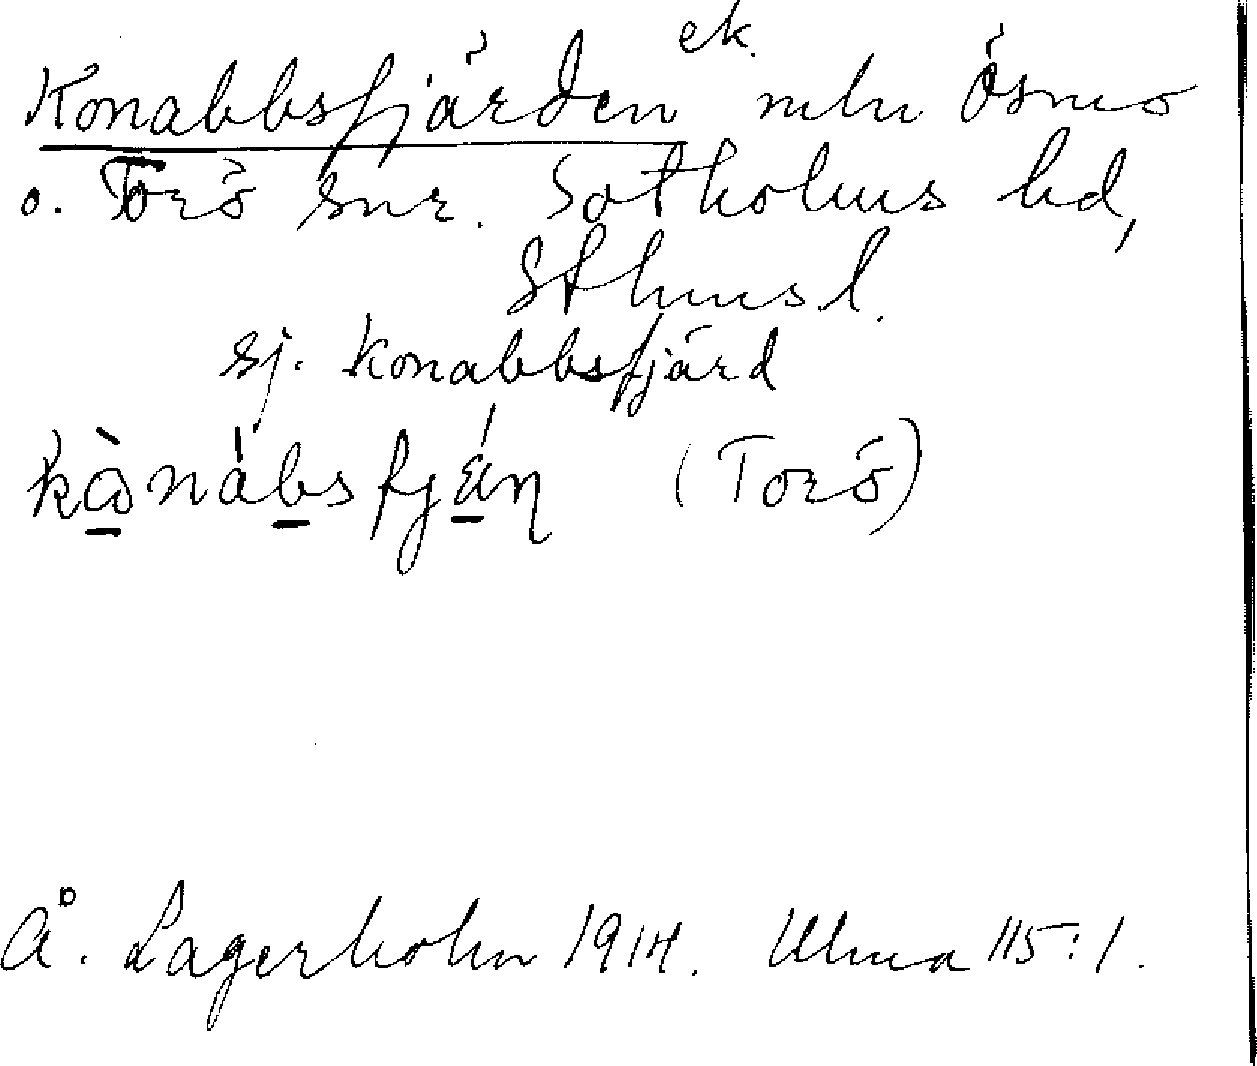 Konabbsfjärden ek. mln Ösmo
o. Torö snr. Sotholms hd,
Sthms l.
sj. Konabbsfjärd
kὼnábsfjä́ṇ (Torö)
Å. Lagerholm 1914. Ulma 115:1.